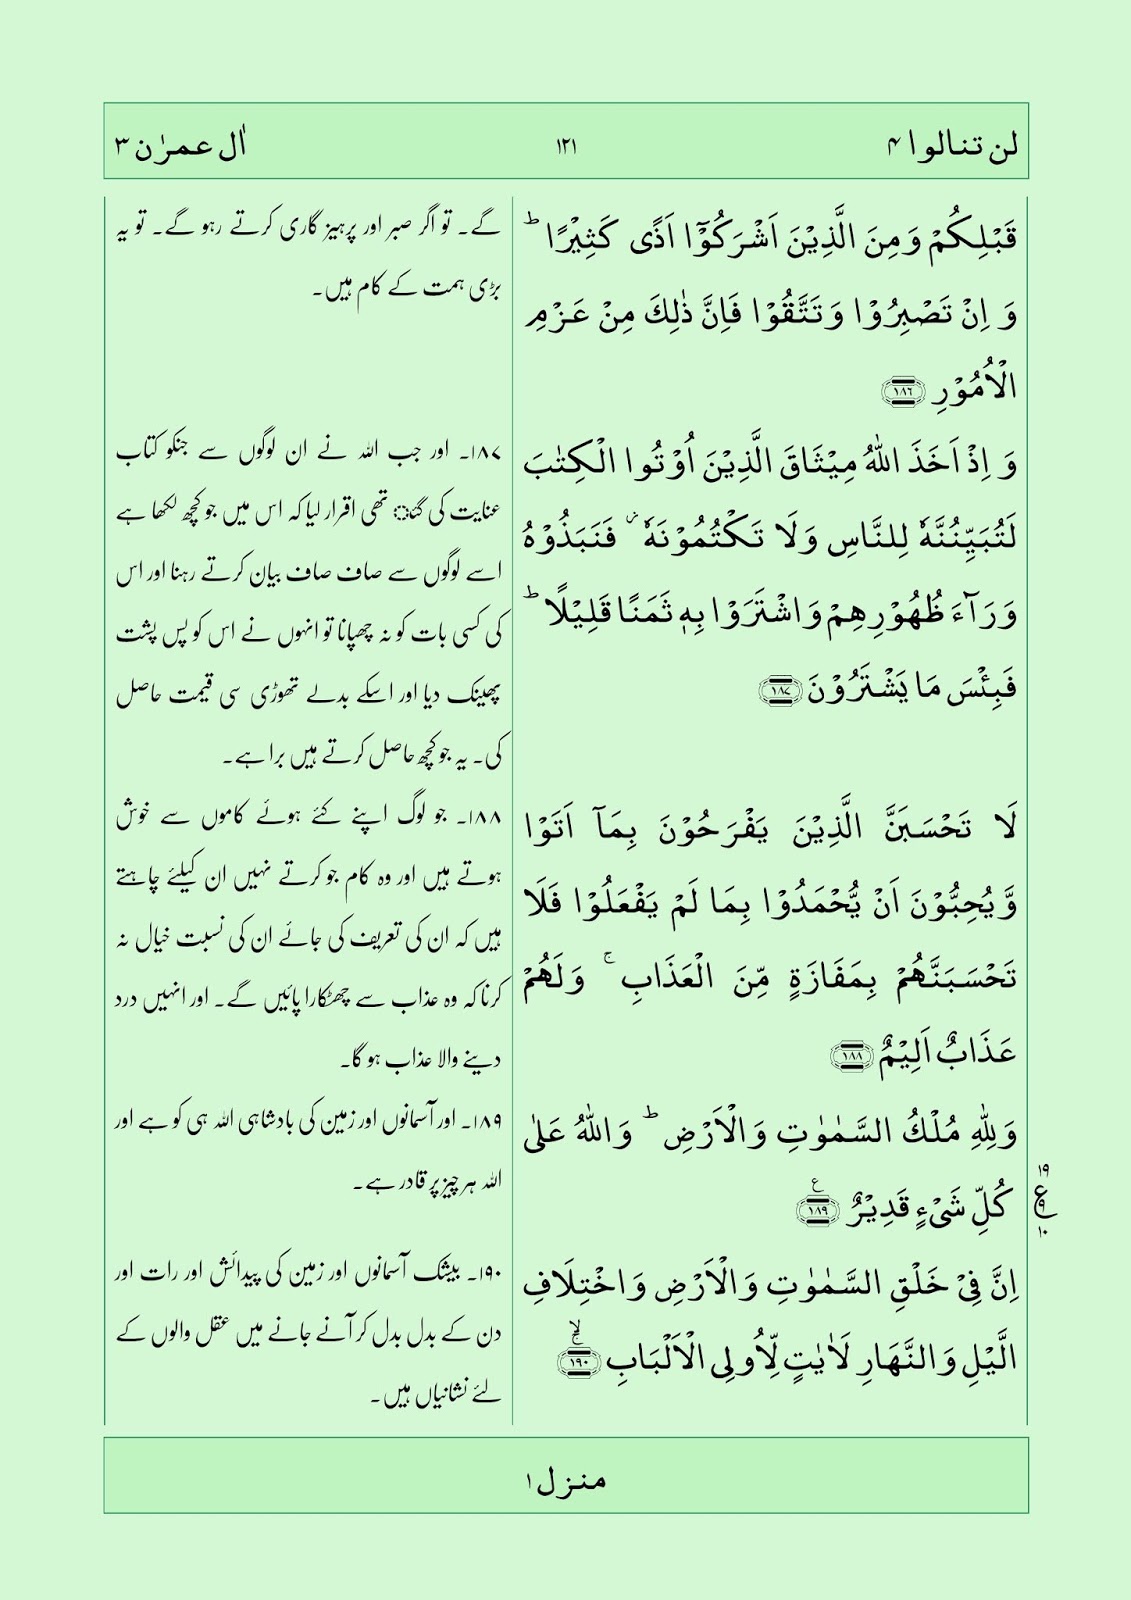 لن تنالوا ۴
۱۲۱
اٰل عمرٰن ۳
قَبۡلِكُمۡ وَمِنَ الَّذِيۡنَ اَشۡرَكُوۡۤا اَذًى كَثِيۡرًا‌ ؕ
وَاِنۡ تَصۡبِرُوۡا وَتَتَّقُوۡا فَاِنَّ ذٰلِكَ مِنۡ عَزۡمِ
الۡاُمُوۡرِ ﴿۱۸۶﴾
وَاِذۡ اَخَذَ اللّٰهُ مِيۡثَاقَ الَّذِيۡنَ اُوۡتُوا الۡكِتٰبَ
لَتُبَيِّنُنَّهٗ لِلنَّاسِ وَلَا تَكۡتُمُوۡنَهٗ ۫ فَنَبَذُوۡهُ
وَرَآءَ ظُهُوۡرِهِمۡ وَاشۡتَرَوۡا بِهٖ ثَمَنًا قَلِيۡلًا‌ ؕ
فَبِئۡسَ مَا يَشۡتَرُوۡنَ ﴿۱۸۷﴾
لَا تَحۡسَبَنَّ الَّذِيۡنَ يَفۡرَحُوۡنَ بِمَاۤ اَتَوْا
وَّيُحِبُّوۡنَ اَنۡ يُّحۡمَدُوۡا بِمَا لَمۡ يَفۡعَلُوۡا فَلَا
تَحۡسَبَنَّهُمۡ بِمَفَازَةٍ مِّنَ الۡعَذَابِ‌ ۚ وَلَهُمۡ
عَذَابٌ اَلِيۡمٌ ﴿۱۸۸﴾
وَلِلّٰهِ مُلۡكُ السَّمٰوٰتِ وَالۡاَرۡضِ‌ ؕ وَاللّٰهُ عَلٰى
كُلِّ شَىۡءٍ قَدِيۡرٌ ﴿۱۸۹﴾ ع
اِنَّ فِىۡ خَلۡقِ السَّمٰوٰتِ وَالۡاَرۡضِ وَاخۡتِلَافِ
الَّيۡلِ وَالنَّهَارِ لَاٰيٰتٍ لِّاُولِى الۡاَلۡبَابِ ﴿۱۹۰﴾ ۚۙ
۱۹
ع ۹
۱۰
گے۔ تو اگر صبر اور پرہیز گاری کرتے رہو گے۔ تو یہ
بڑی ہمت کے کام ہیں۔
۱۸۷۔ اور جب اللہ نے ان لوگوں سے جنکو کتاب
عنایت کی گئ تھی اقرار لیا کہ اس میں جو کچھ لکھا ہے
اسے لوگوں سے صاف صاف بیان کرتے رہنا اور اس
کی کسی بات کو نہ چھپانا تو انہوں نے اس کو پس پشت
پھینک دیا اور اسکے بدلے تھوڑی سی قیمت حاصل
کی۔ یہ جو کچھ حاصل کرتے ہیں برا ہے۔
۱۸۸۔ جو لوگ اپنے کئے ہوئے کاموں سے خوش
ہوتے ہیں اور وہ کام جو کرتے نہیں ان کیلئے چاہتے
ہیں کہ ان کی تعریف کی جائے ان کی نسبت خیال نہ
کرنا کہ وہ عذاب سے چھٹکارا پائیں گے۔ اور انہیں درد
دینے والا عذاب ہو گا۔
۱۸۹۔ اور آسمانوں اور زمین کی بادشاہی اللہ ہی کو ہے اور
اللہ ہر چیز پر قادر ہے۔
۱۹۰۔ بیشک آسمانوں اور زمین کی پیدائش اور رات اور
دن کے بدل بدل کر آنے جانے میں عقل والوں کے
لئے نشانیاں ہیں۔
منزل ۱